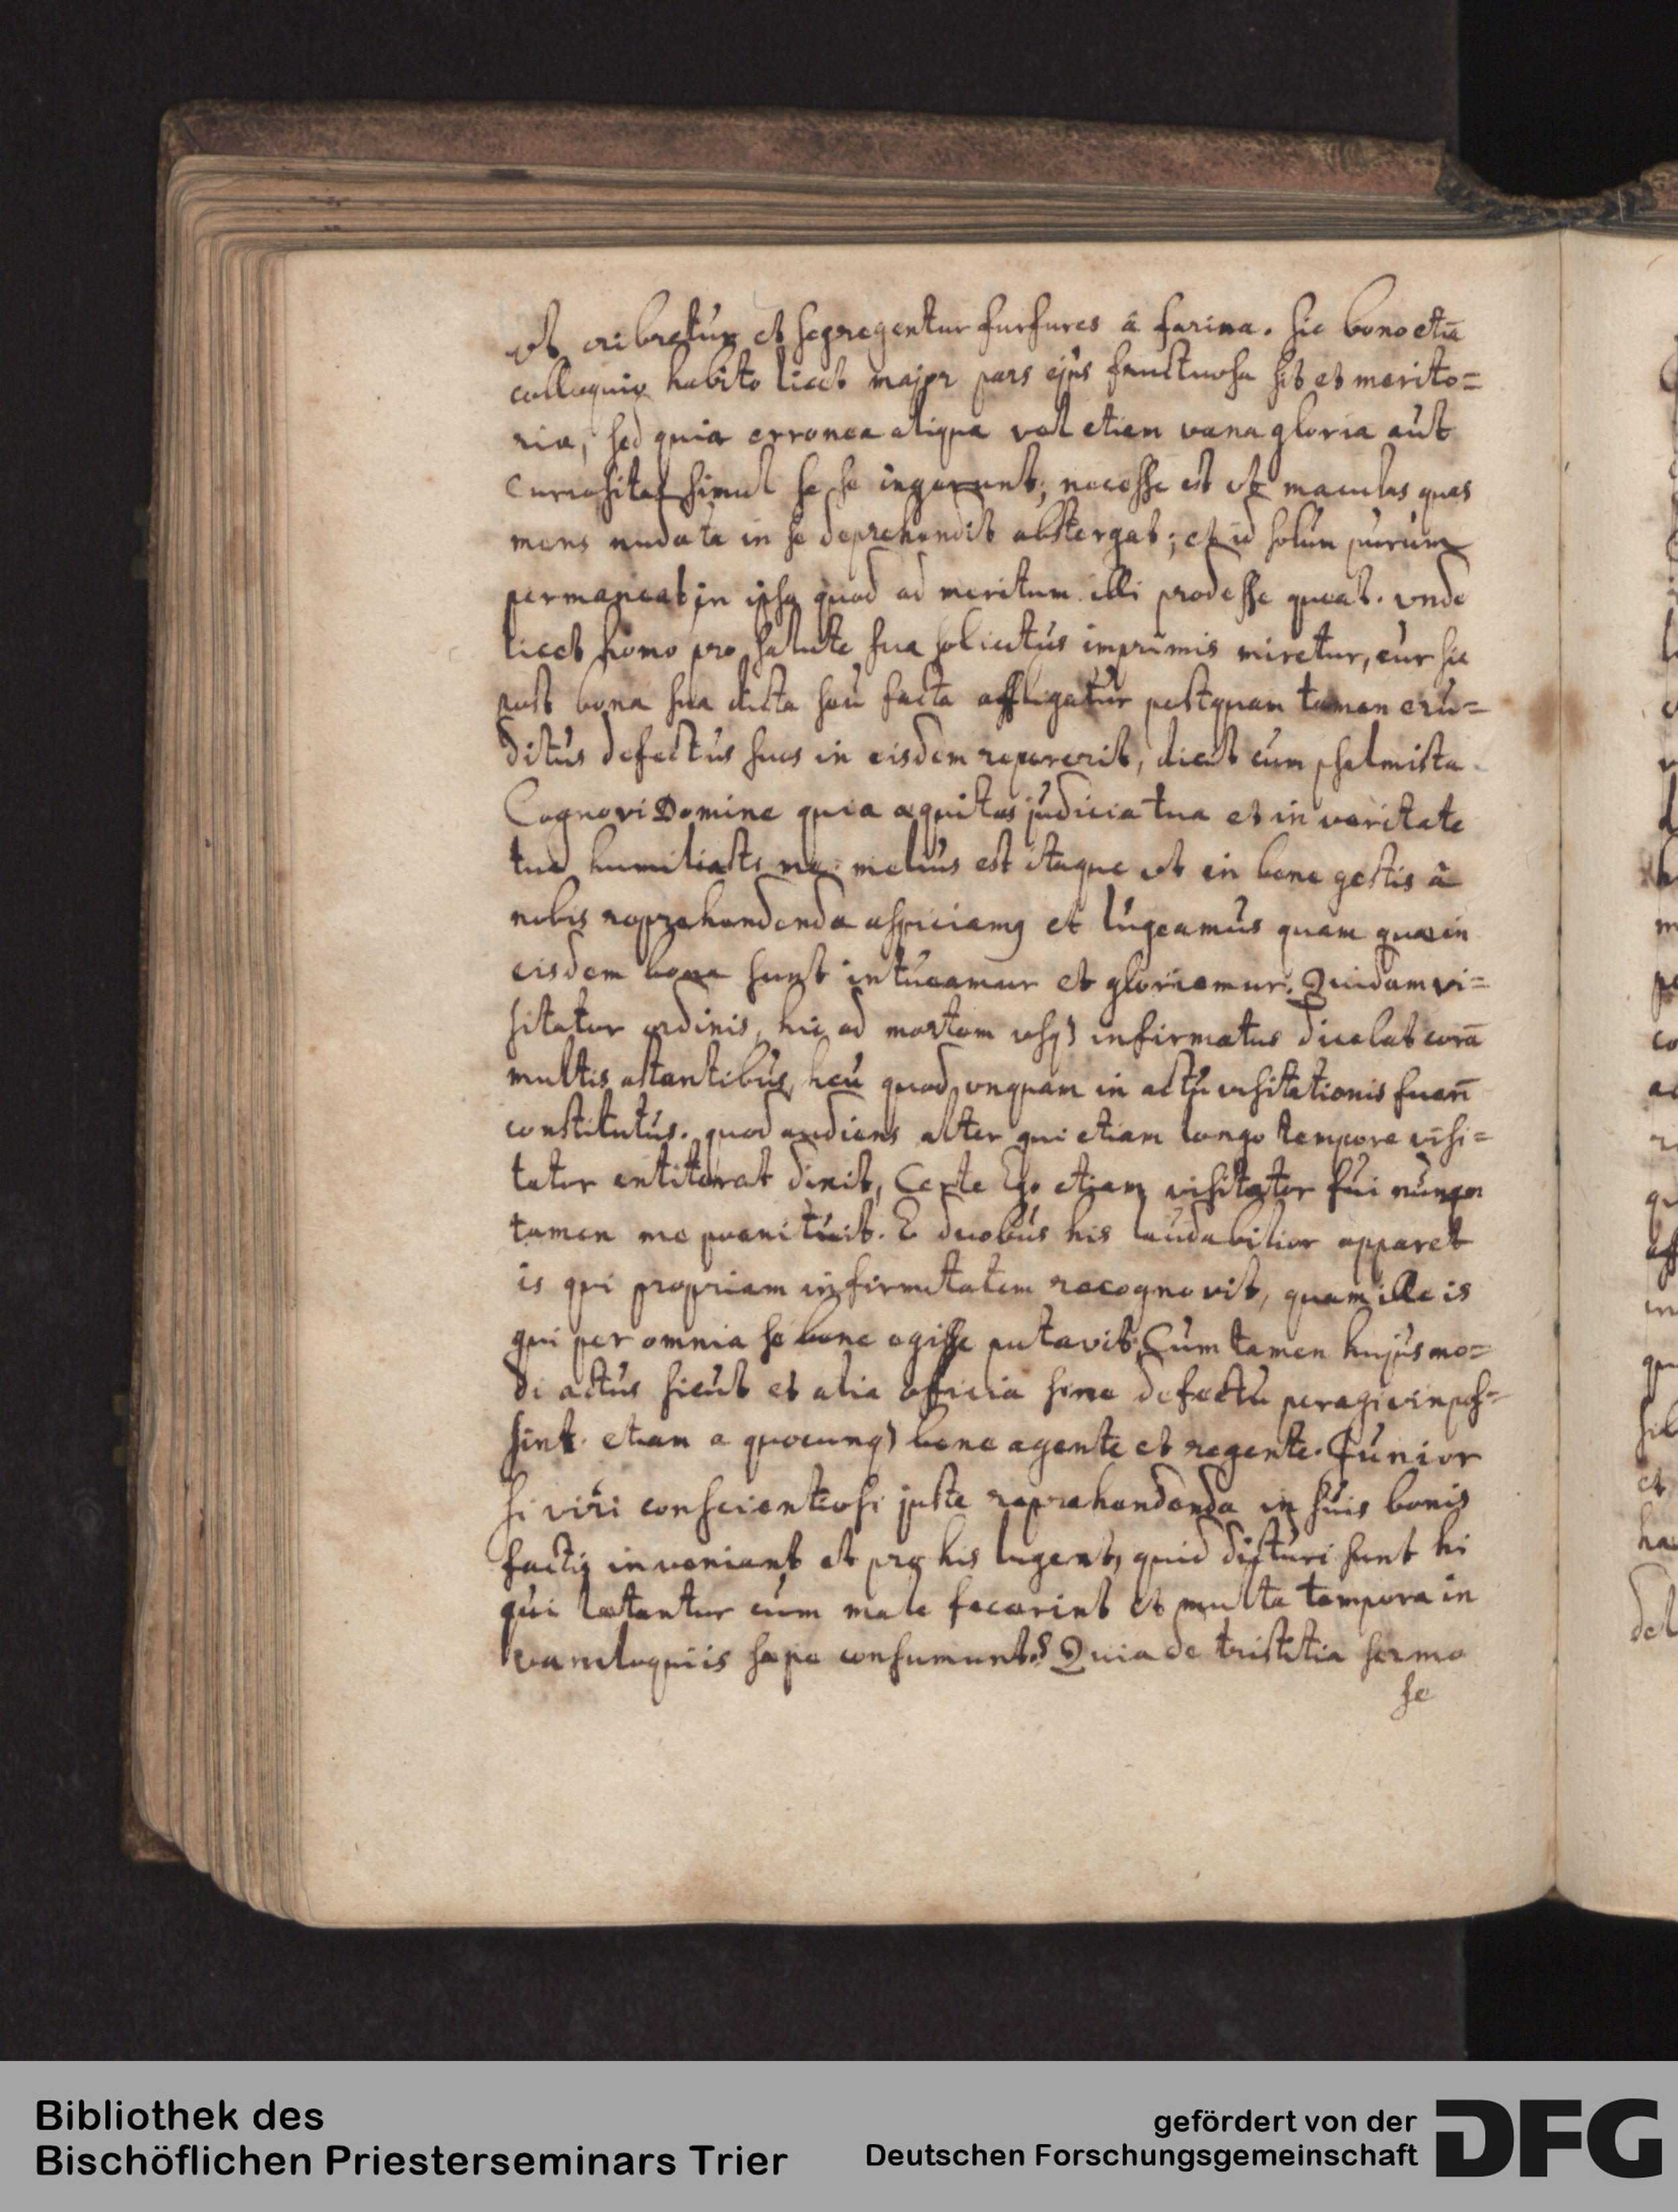 vt cribretur et segregentur furfures â farina. sic bono etiā
colloquio habito licet major pars ejus fructuosa sit et merito=
ria, sed quia erronea aliqua vel etiam vana gloria aut
curiositas simul se se ingerunt; necesse est vt maculas quas
mens nudata in se deprehendit abstergat; et id solum purum
permaneat in ipsa quod ad meritum illi prodesse queat. vnde
licet homo pro salute sua solicitus imprimis miretur, cur sic
post bona sua dicta seu facta affligatur postquam tamen eru=
ditus defectus suos in eisdem repererit, dicit cum psalmista.
Cognovi Domine quia æquitas judicia tua et in veritate
tua humiliasti me. melius est itaque vt in bene gestis â
nobis reprehendenda aspiciamg et lugeamus quam quæ in
eisdem bona sunt intueamur et gloriemur. Quidam vi=
sitator ordinis, hic ad mortem vsq3 infirmatus dicebat corā
multis astantibus, heu quod vnquam in actu visitationis fueri
constitutus. quod audiens alter qui etiam longo tempore visi=
tator extiterat dixit, Certe Ego etiam visitator fui nunqm
tamen me poenituit. E duobus his laudabilior apparet
is qui propriam infirmitatem recognovit, quam ille is
qui per omnia se bene egisse putavit; Cum tamen hujusmo=
di actus sicut et alia officia sine defectu peragi vix pos=
sint. etiam a quocunq3 bene agente et regente. Junior
si viri conscientiosi juste reprehendenda in suis bonis
factis inveniunt et pro his lugent, quid dicturi sunt hi
qui lætantur cum male fecerint et multa tempora in
vaniloquiis sæpe consumunt? Quia de tristitia sermo
se
Bibliothek des
Bischöflichen Priesterseminars Trier
gefördert von der
Deutschen Forschungsgemeinschaft
DFG